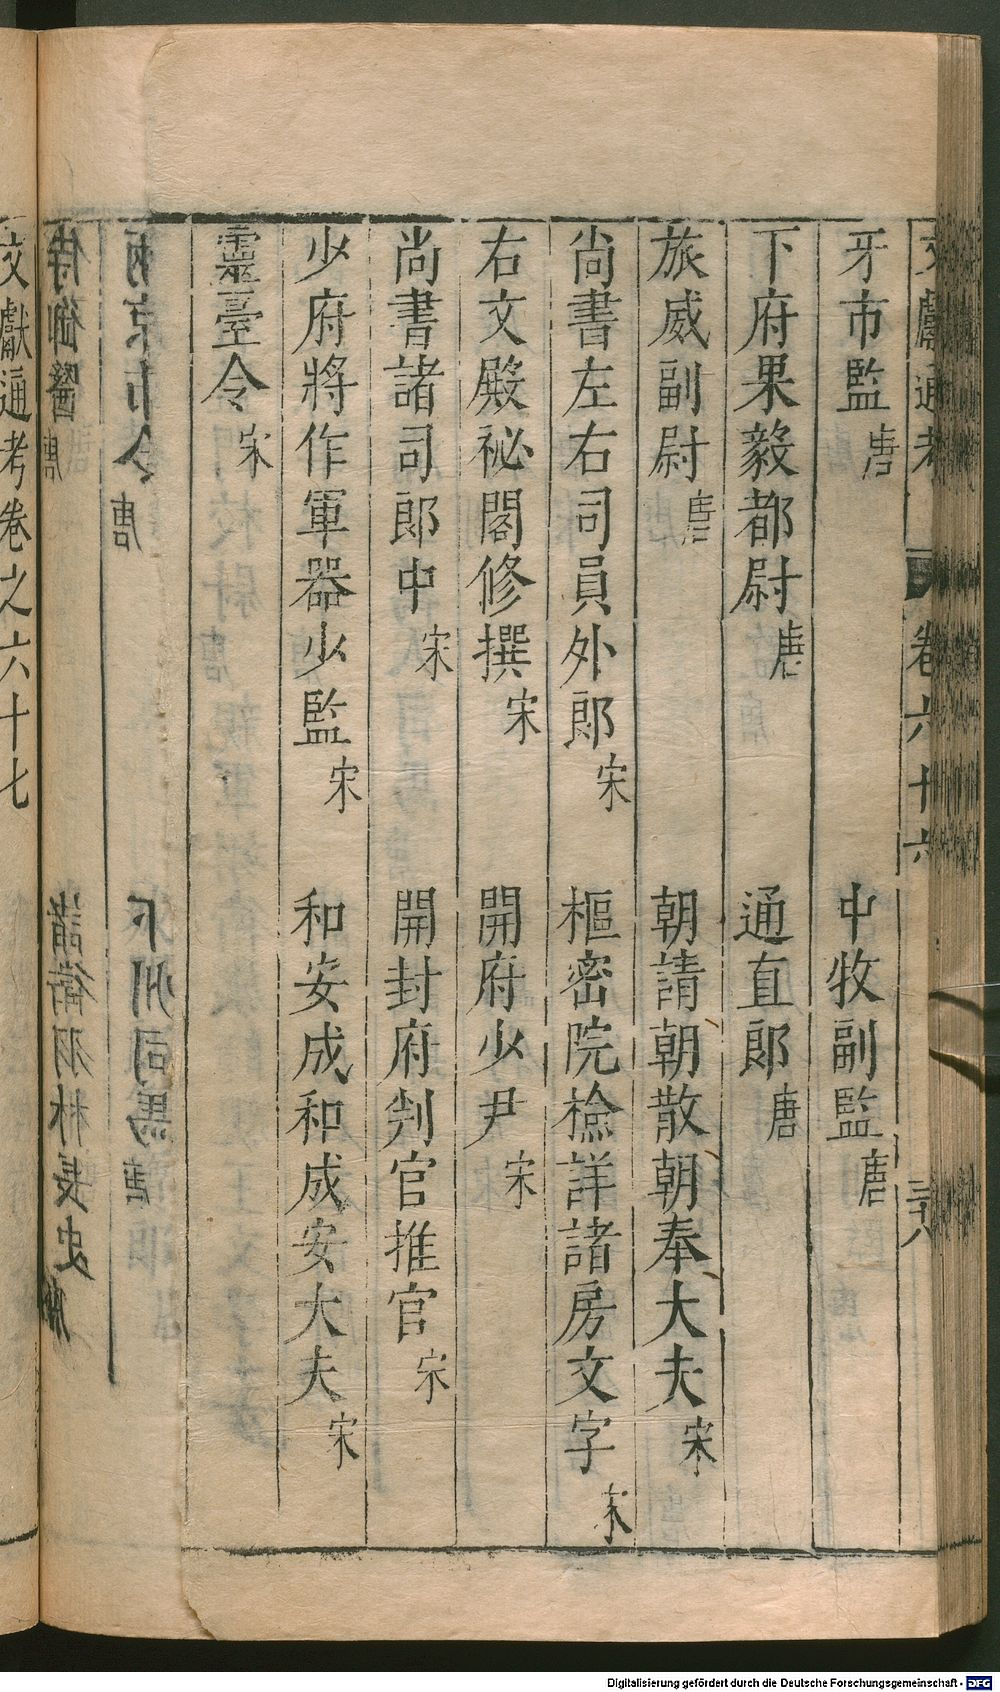 文獻通考 卷六十六 三十八
牙市監唐 中牧副監唐
下府果毅都尉唐 通直郎唐
旅威副尉唐 朝請朝散朝奉大夫宋
尚書左右司員外郎宋 樞密院檢詳諸房文字宋
右文殿祕閣修撰宋 開府少尹宋
尚書諸司郎中宋 開封府判官推官宋
少府將作軍器少監宋 和安成和成安大夫宋
靈臺令宋
兩京市令唐 下州司馬唐
侍御醫唐 諸衛羽林長史
文獻通考卷之六十七
Digitalisierung gefördert durch die Deutsche Forschungsgemeinschaft - DFG